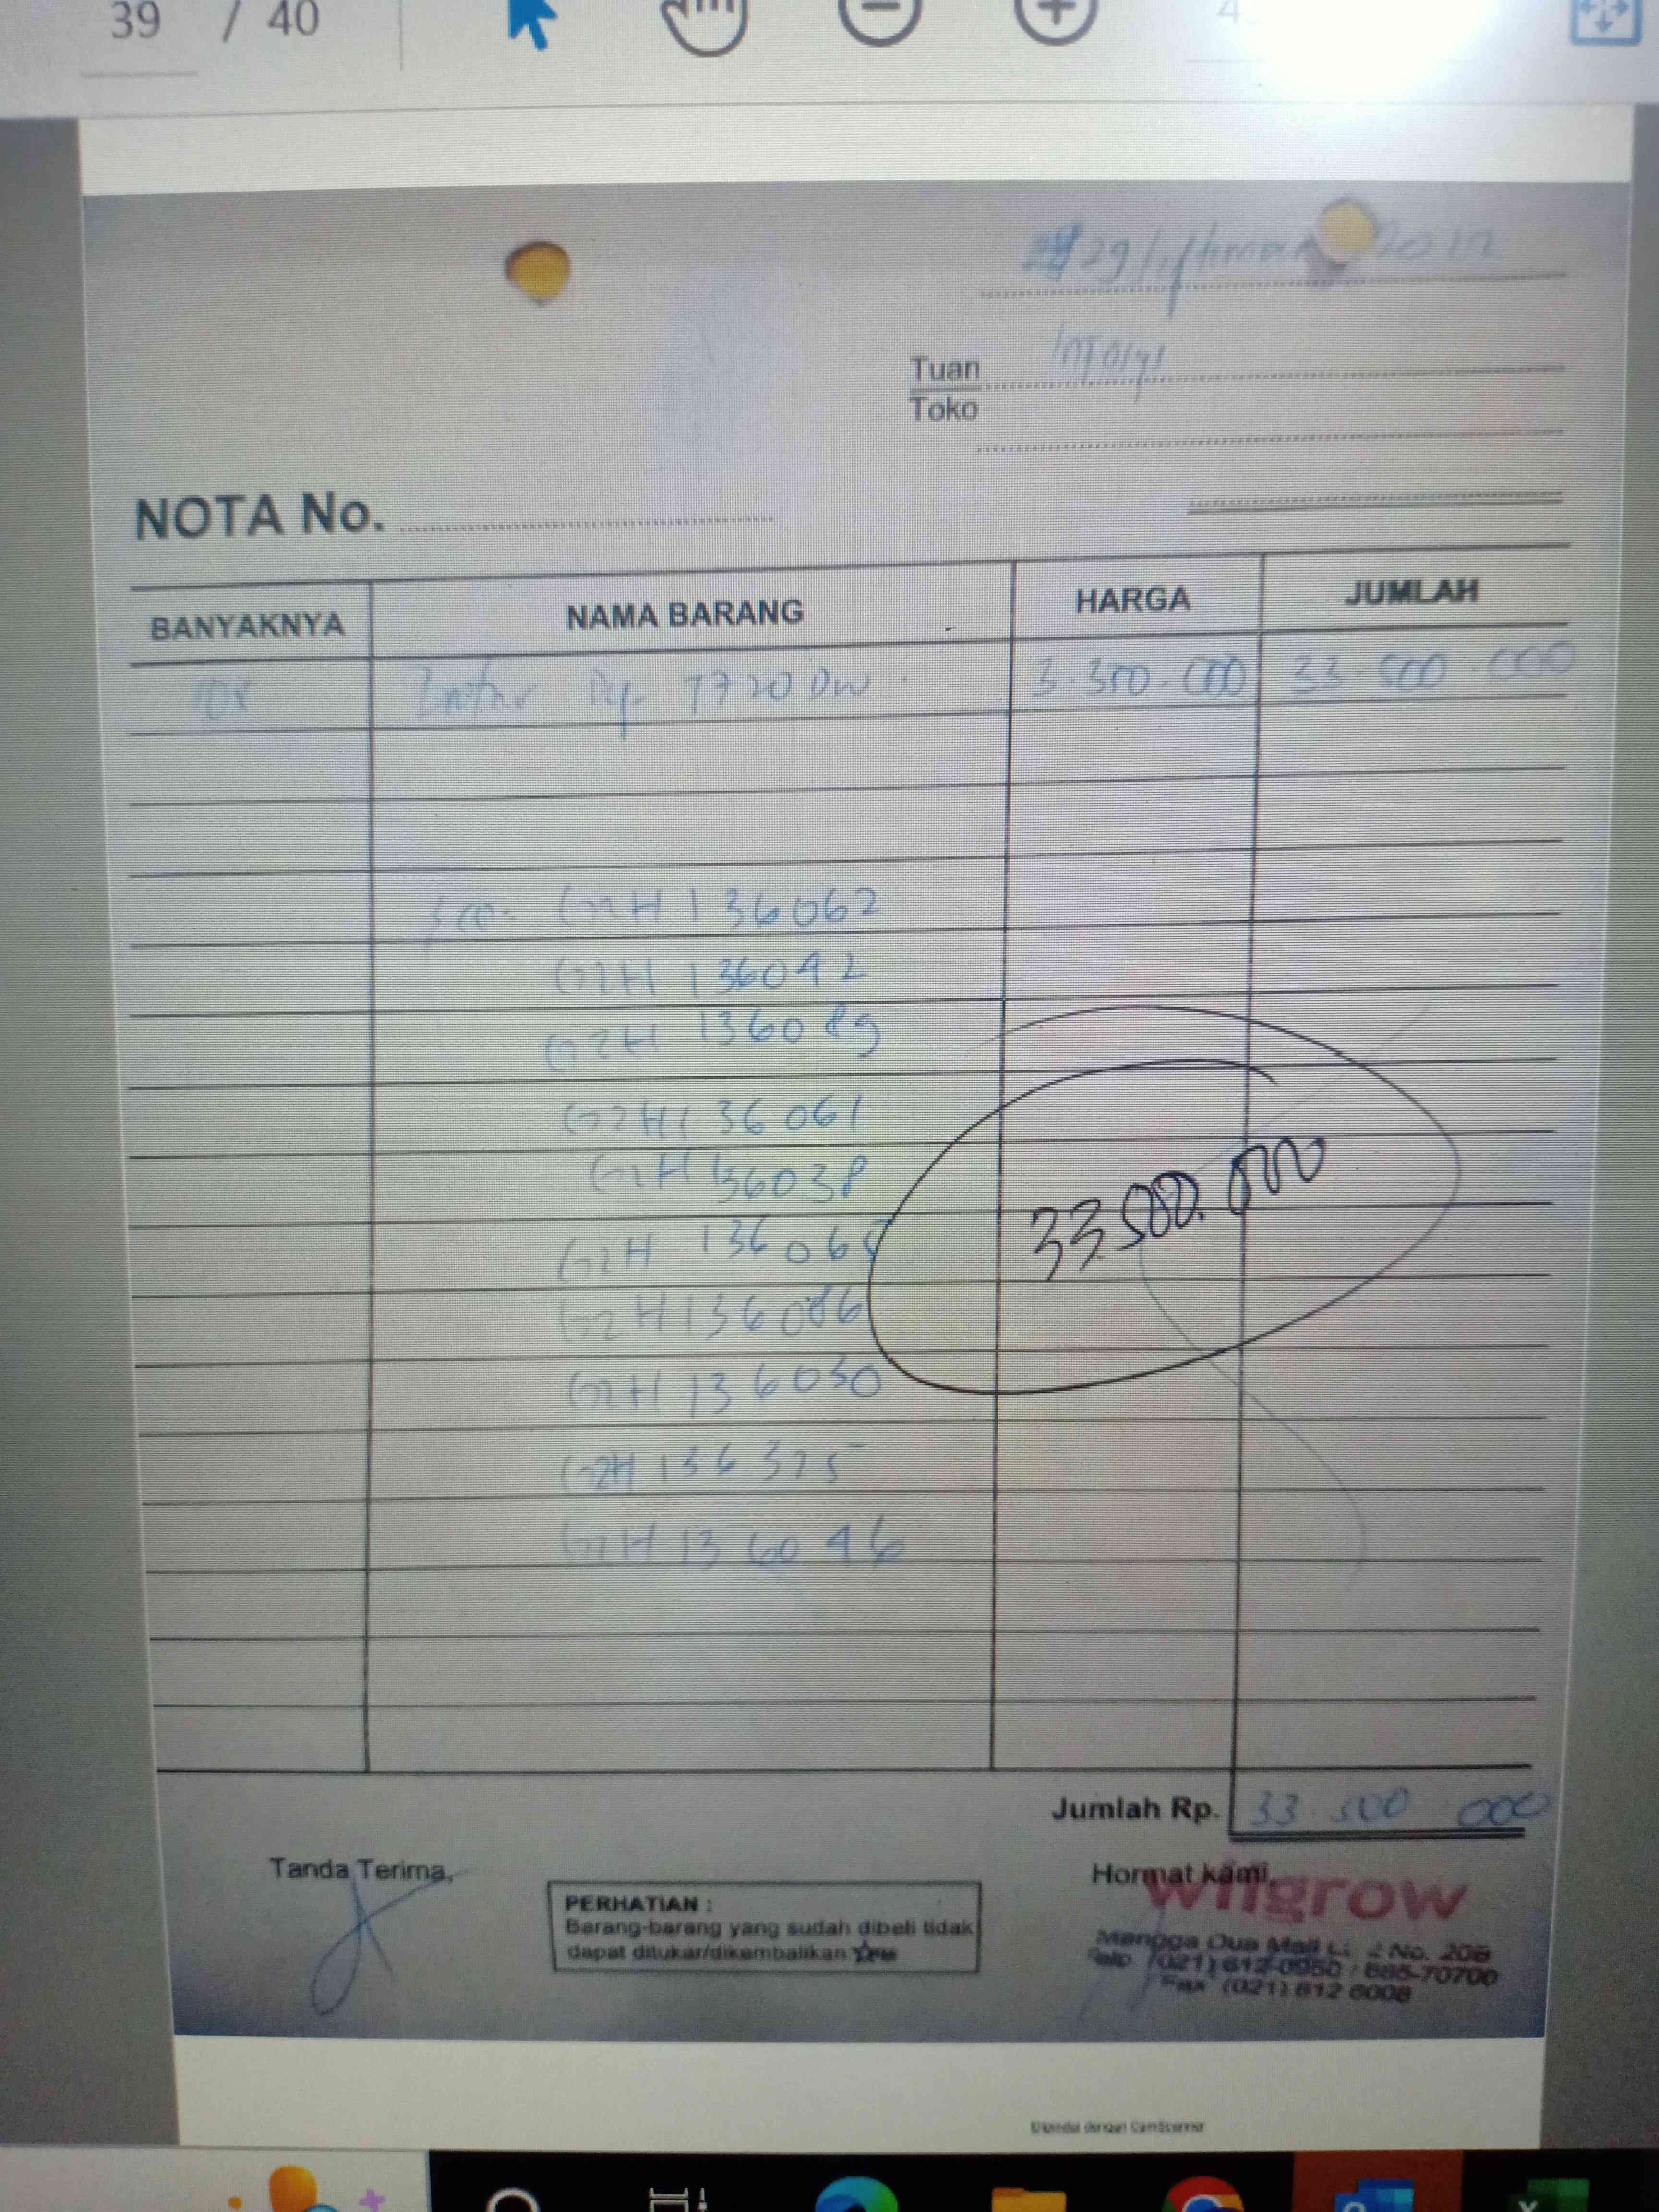 39 / 40
29
Tuan
Toko
NOTA No.
BANYAKNYA NAMA BARANG HARGA JUMLAH
T720DW 33.500.000
G2H136062
G2H136042
G2H136089
G2H136061
G2H136038
G2H136065
G2H136086
G2H136030
G2H136325
G2H136046
33.500.000
Jumlah Rp. 33.500.000
Tanda Terima,
PERHATIAN :
Barang-barang yang sudah dibeli tidak
dapat ditukar/dikembalikan
Hormat kami,
wilgrow
Mangga Dua Mall No. 20B
Telp (021) 612-0950 / 685-70700
Fax (021) 612 6008